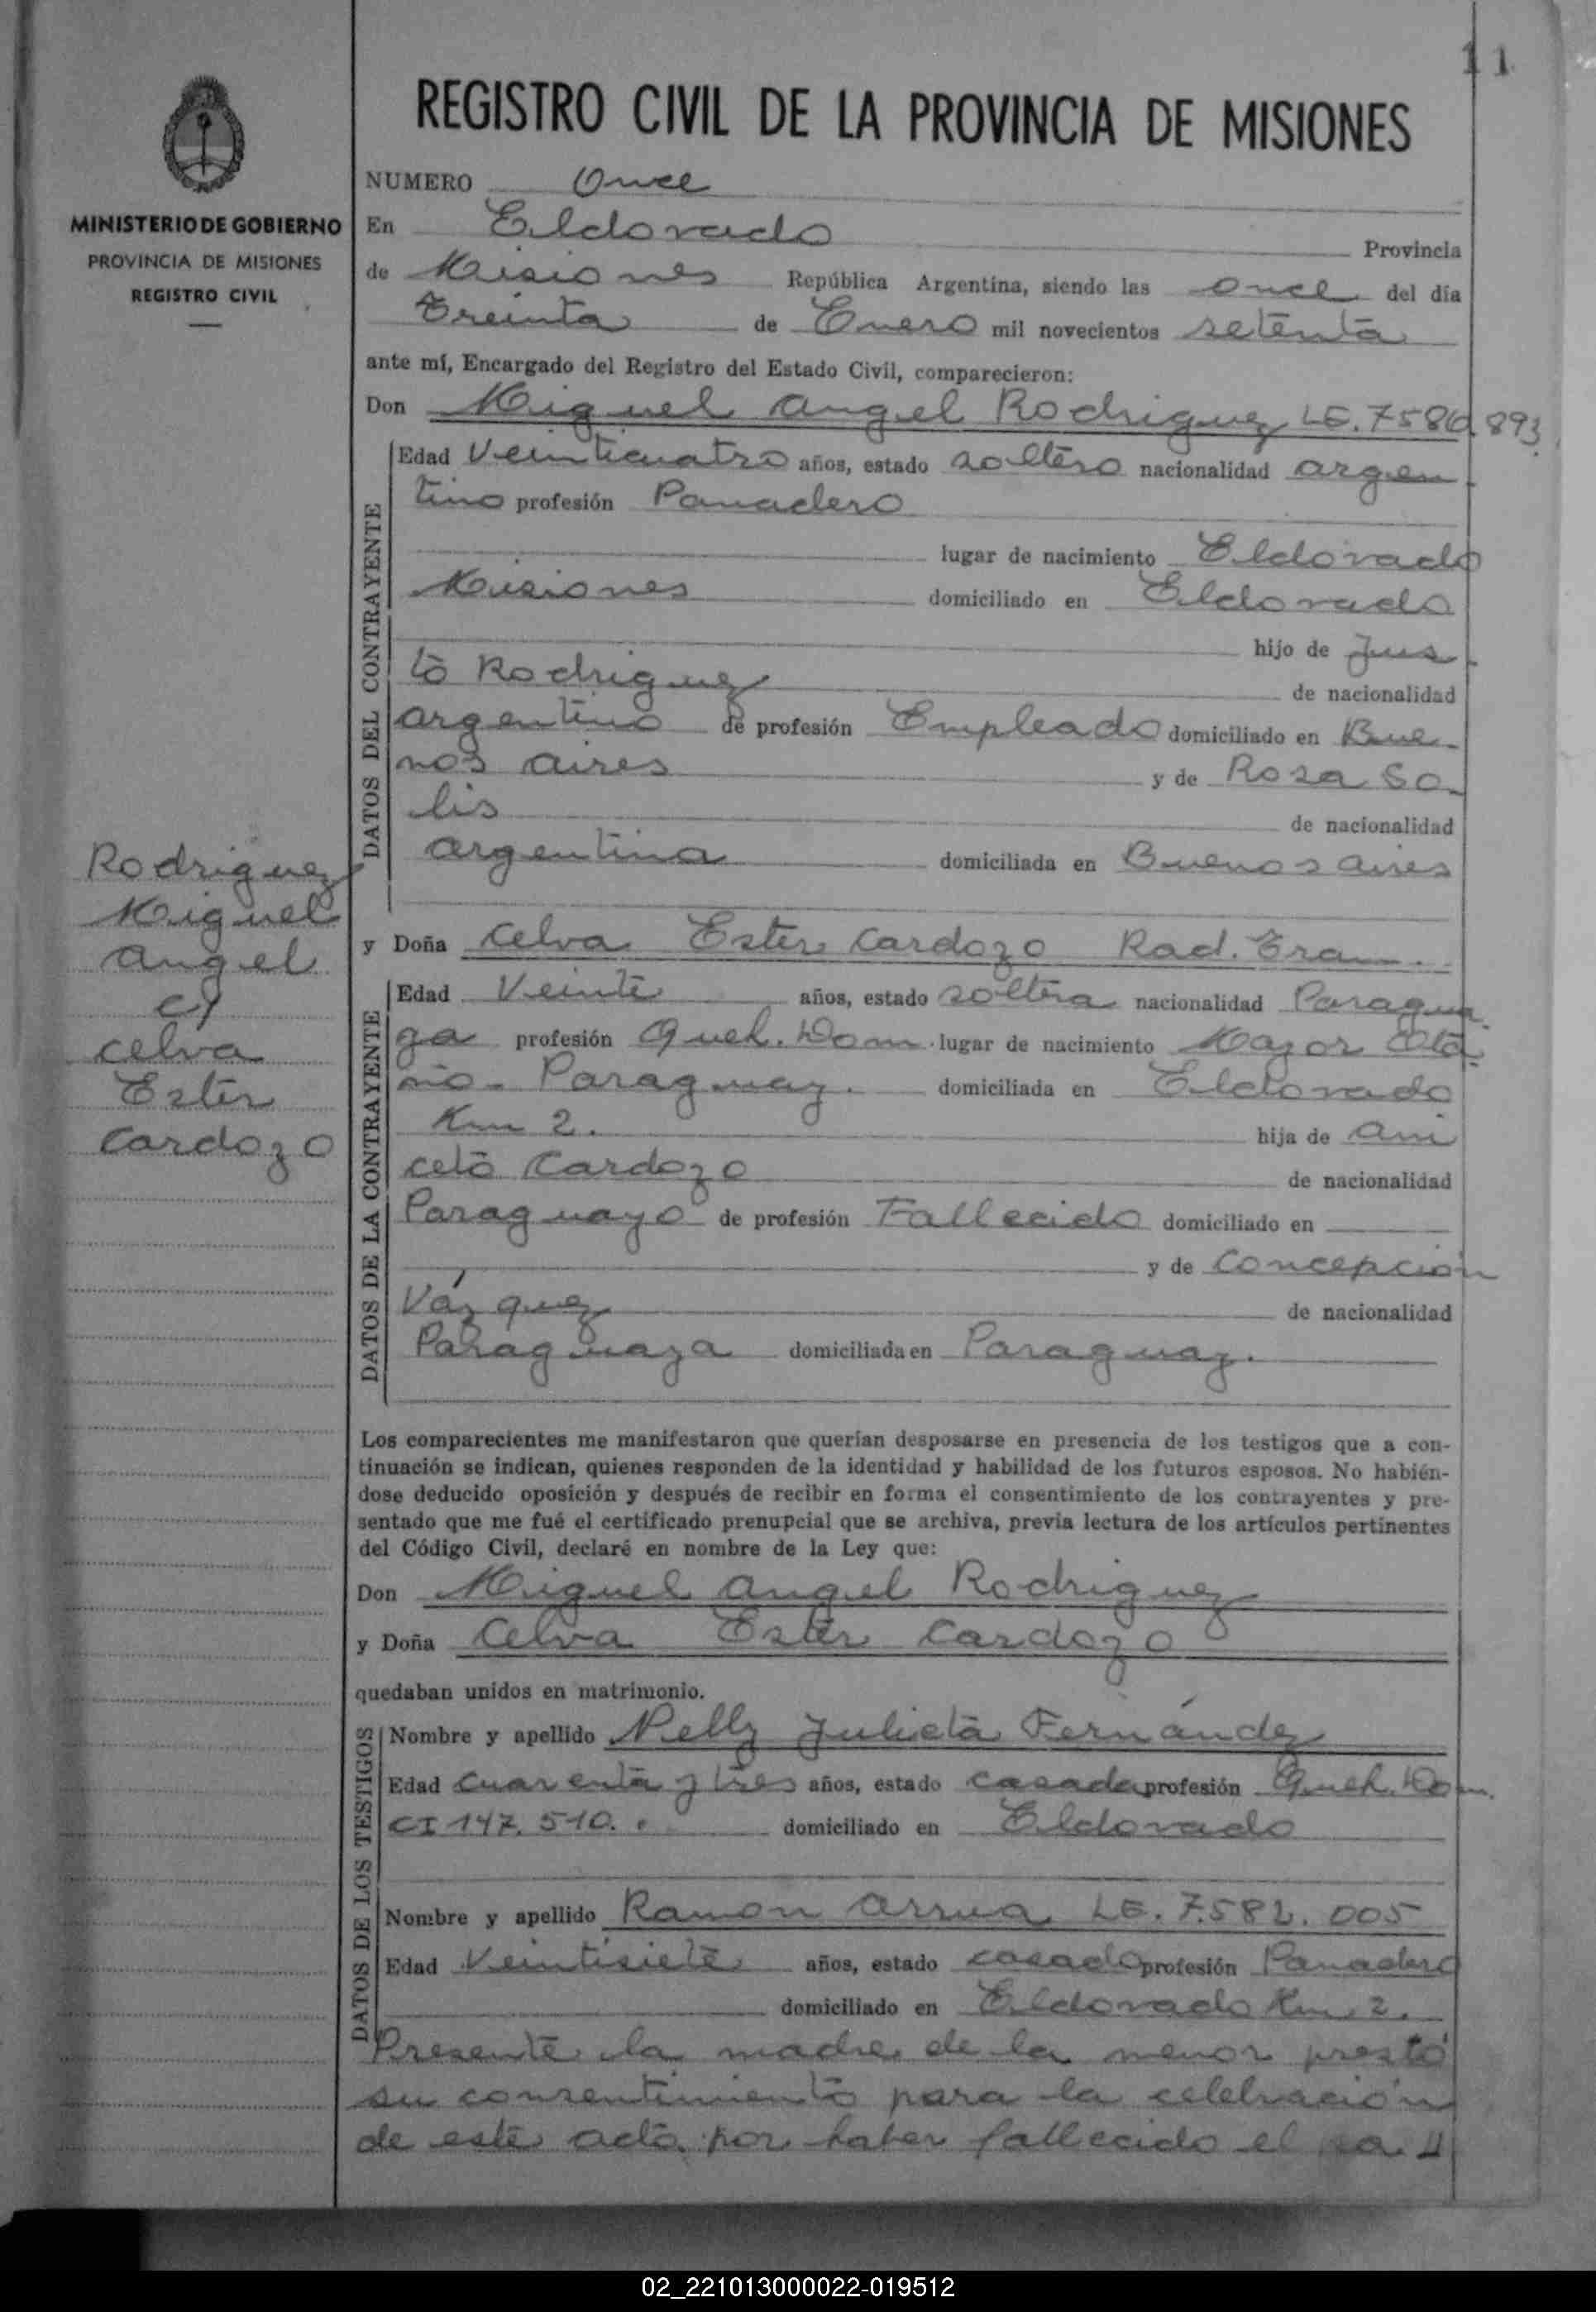 11
REGISTRO CIVIL DE LA PROVINCIA DE MISIONES
MINISTERIO DE GOBIERNO
PROVINCIA DE MISIONES
REGISTRO CIVIL
NUMERO Once
En Eldorado Provincia
de Misiones República Argentina, siendo las once del día
Treinta de Enero mil novecientos setenta
ante mí, Encargado del Registro del Estado Civil, comparecieron:
Don Miguel Angel Rodriguez LE. 7586.893
DATOS DEL CONTRAYENTE
Edad Veinticuatro años, estado soltero nacionalidad argen
tino profesión Panadero
lugar de nacimiento Eldorado
Misiones domiciliado en Eldorado
hijo de Jus
to Rodriguez de nacionalidad
argentino de profesión Empleado domiciliado en Bue-
nos aires y de Rosa So-
lis de nacionalidad
argentina domiciliada en Buenos aires
Rodriguez
Miguel
Angel
c/
Celva
Ester
Cardozo
y Doña Celva Ester Cardozo Rad. Tram.
DATOS DE LA CONTRAYENTE
Edad Veinte años, estado soltera nacionalidad Paragua-
ya profesión Queh. Dom. lugar de nacimiento Mayor Ota-
ño - Paraguay. domiciliada en Eldorado
Km 2. hija de Ani
ceto Cardozo de nacionalidad
Paraguayo de profesión Fallecido domiciliado en
y de Concepción
Vázquez de nacionalidad
Paraguaya domiciliada en Paraguay.
Los comparecientes me manifestaron que querían desposarse en presencia de los testigos que a con-
tinuación se indican, quienes responden de la identidad y habilidad de los futuros esposos. No habién-
dose deducido oposición y después de recibir en forma el consentimiento de los contrayentes y pre-
sentado que me fué el certificado prenupcial que se archiva, previa lectura de los artículos pertinentes
del Código Civil, declaré en nombre de la Ley que:
Don Miguel Angel Rodriguez
y Doña Celva Ester Cardozo
quedaban unidos en matrimonio.
DATOS DE LOS TESTIGOS
Nombre y apellido Nelly Julieta Fernández
Edad Cuarenta y tres años, estado casada profesión Queh. Dom.
CI 147.510. domiciliado en Eldorado
Nombre y apellido Ramon Arrua LE. 7.582.005
Edad Veintisiete años, estado casado profesión Panadero
domiciliado en Eldorado Km 2.
Presente la madre de la menor prestó
su consentimiento para la celebración
de este acto por haber fallecido el
02_221013000022-019512